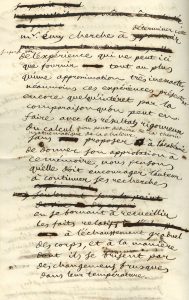 déterminer cette
mr. Cuny cherche à
de l'expérience qui ne peut ici
que fournir tout au plus
qu'une approximation très inexacte,
néanmoins ces expériences
encore quelqu'intérêt par la
comparaison qu'on peut en
faire avec les résultats rigoureux
du calcul
sans proposer à l'académie
de donner son approbation à
ce mémoire, nous pensons
qu'elle doit encourager l'auteur
à continuer ses recherches
en se bornant à recueillir
les faits relatifs
à l'échauffement graduel
des corps, et à la manière
dont ils se brisent par
des changemens brusques
dans leur température.